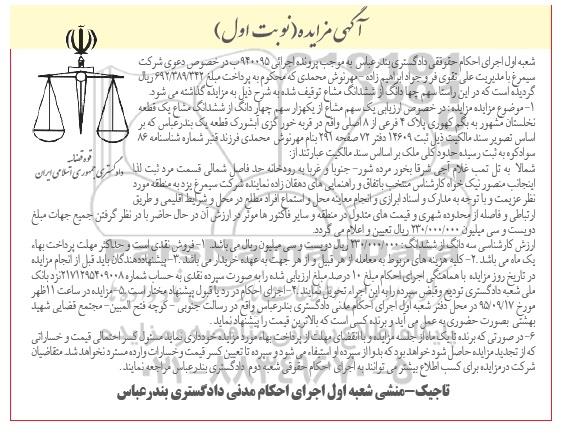 آگهی مزایده (نوبت اول)
شعبه اول اجرای احکام حقوقی دادگستری بندرعباس به موجب پرونده اجرائی ۹۴۰۰۹۵ ب در خصوص دعوی شرکت
سیمرغ با مدیریت علی تقوی فر و جواد ابراهیم زاده – مهرنوش محمدی که محکوم به پرداخت مبلغ ۶۹۲/۳۸۹/۳۴۲ ریال
گردیده است که در این راستا سهم چهار دانگ از ششدانگ مشاع توقیف شده به شرح ذیل به مزایده گذاشته می شود.
۱- موضوع مزایده مزایده: در خصوص ارزیابی یک سهم مشاع از یکهزار سهم چهار دانگ از ششدانگ مشاع یک قطعه
نخلستان مشهور به بگیر کهوری پلاک ۴ فرعی از ۸ اصلی واقع در قریه خور گزی آبشورک قطعه یک بندرعباس که بر
اساس تصویر سند مالکیت ذیل ثبت ۱۴۶۰۹ دفتر ۷۲ صفحه ۲۹۶ بنام مهرنوش محمدی فرزند قنبر شماره شناسنامه ۸۶
سوادکوه به ثبت رسیده حدود کلی ملک بر اساس سند مالکیت عبارتند از:
شمالا به تل تمب غلام آچی شرقا بخور مرده شور- جنوبا و غربا به رودخانه حد فاصل شمالی قسمت مرد ثبت لذا
اینجانب منصور نیک خواه کارشناس منتخب باتفاق و راهنمایی های دهقان زاده نماینده شرکت سیمرغ یزد به منطقه مورد
نظر عزیمت و با توجه به مدارک و اسناد ابرازی و انجام معاینه محل و استماع افراد مطلع در محل و شرایط اقلیمی و طریق
ارتباطی و فاصله از محدوده شهری و قیمت های متداول در منطقه و سایر فاکتور ها موثر در ارزش آن در حال حاضر با در نظر گرفتن جمیع جهات مبلغ
دویست و سی میلیون ۲۳۰/۰۰۰/۰۰۰ ریال تعیین و اعلام می گردد.
ارزش کارشناسی سه دانگ از ششدانگ: ۲۳۰/۰۰۰/۰۰۰ ریال دویست و سی میلیون ریال می باشد. ۱- فروش نقدی است و حداکثر مهلت پرداخت بهاء
یک ماه می باشد. ۲- کلیه هزینه های مربوط به معامله از هر قبیل و از هر جهت به عهده خریدار می باشد. ۳- پیشنهاددهندگان باید قبل از انجام مزایده
در تاریخ روز مزایده با هماهنگی اجرای احکام مبلغ ۱۰ درصد مبلغ ارزیابی شده را به صورت سپرده نقدی به حساب شماره ۲۱۷۱۲۹۵۴۰۹۰۰۸ نزد بانک
ملی شعبه دادگستری تودیع و قبض سپرده را به این اجراء تحویل نمایند. ۴- اجرای احکام در رد یا قبول پیشنهاد مختار است. ۵- مزایده در ساعت ۱۱ ظهر
مورخ ۹۵/۰۹/۱۷ در محل دفتر شعبه اول اجرای احکام مدنی دادگستری بندرعباس واقع در رسالت جنوبی - کوچه فتح المبین - مجتمع قضایی شهید
بهشتی بصورت حضوری به عمل می آید و برنده کسی است که بالاترین قیمت را پیشنهاد نماید.
۶- در صورتی که برنده تا یک ماه از جلسه مزایده و با انقضای مهلت از پرداخت بهاء مورد مزایده خودداری نماید مسئول کسر احتمالی قیمت و خساراتی
که از تجدید مزایده حاصل شود خواهد بود که بدوا از سپرده او استیفاء می شود و سپرده تا تعیین کسر قیمت و خسارات وارده مسترد نخواهد شد. متقاضیان
شرکت در مزایده برای کسب اطلاع بیشتر می توانند به اجرای احکام حقوقی شعبه دوم دادگستری بندرعباس مراجعه نمایند.
تاجیک – منشی شعبه اول اجرای احکام مدنی دادگستری بندرعباس
قوه قضائیه
دادگستری جمهوری اسلامی ایران